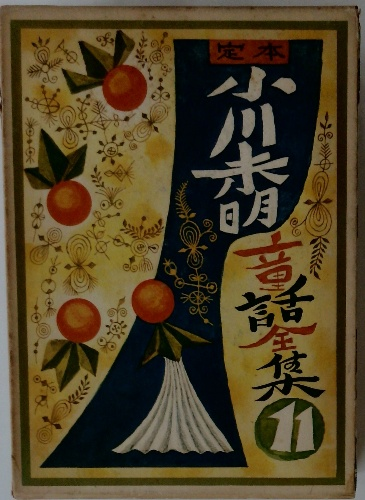 定本
小川未明
童話全集
11